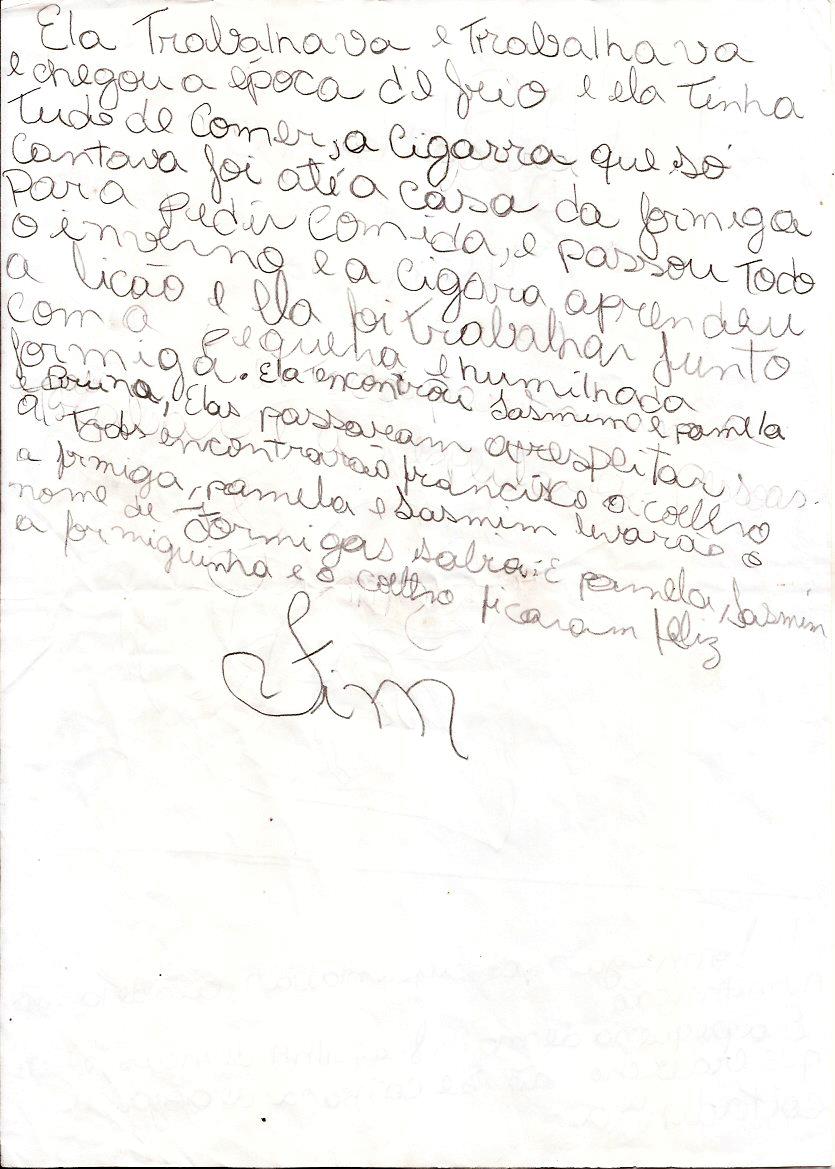 Ela Trabalhava e Trabalhava
e chegou a época de frio e ela Tinha
Tudo de Comer, a Cigarra que só
Cantava foi até a casa da formiga
para pedir comida, e passou Todo
o inverno e a cigara aprendeu
a licão e ela foi Trabalhar Junto
com a pequena e humilhada
formiga. Ela encontrou Jasmim e pamela
e Bruna, Elas passaram a respeitar
Todos encontrarão francisco o coelho
a frmiga, pamela e Jasmim levarão o
nome de Formigas salva: E pamela, Jasmim
a formiguinha e o coelho ficaram feliz
Fim